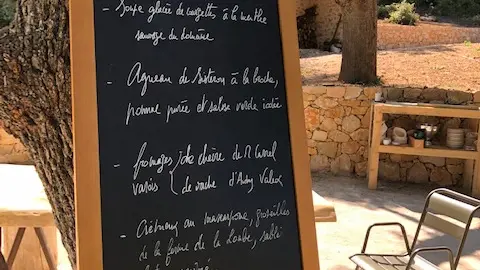 - Soupe glacée de courgettes à la menthe
sauvage du domaine
- Agneau de Sisteron à la broche,
pomme purée et salsa verde iodée
- fromages { de chèvre de M
varois { de vache d'
- Crémeux au mascarpone, groseilles
de la ferme de la Londe, sablé